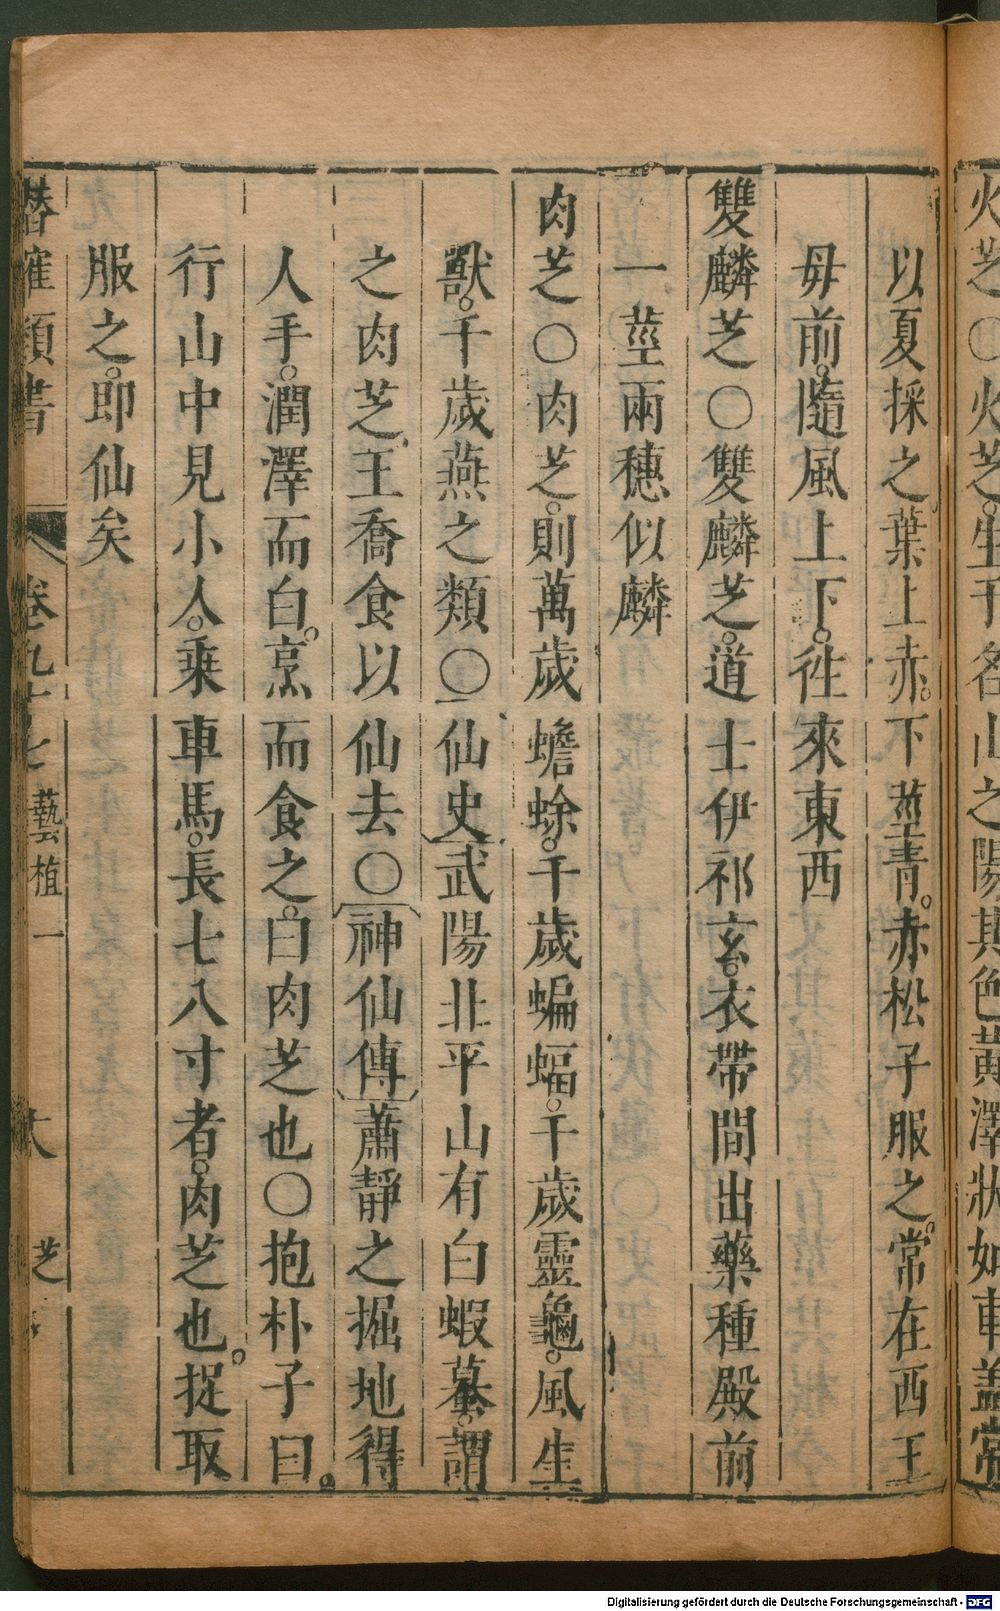 火芝〇火芝。生于名山之陽其色黄澤狀如車蓋常
以夏採之。葉上赤。下莖青。赤松子服之。常在西王
毋前。隨風上下。徃來東西
雙麟芝〇雙麟芝。道士伊祁玄。衣帶間出藥種殿前
一莖兩穗似麟
肉芝〇肉芝。則萬歲蟾蜍。千歲蝙蝠。千歲靈龜。風生
獸。千歲燕之類〇仙史武陽北平山有白蝦蟇。謂
之肉芝王喬食以仙去〇神仙傳蕭靜之掘地得
人手。潤澤而白。烹而食之。曰肉芝也〇抱朴子曰。
行山中見小人。乘車馬。長七八寸者。肉芝也。捉取
服之。即仙矣
潛確類書 卷九十七 藝植一 芝
Digitalisierung gefördert durch die Deutsche Forschungsgemeinschaft - DFG